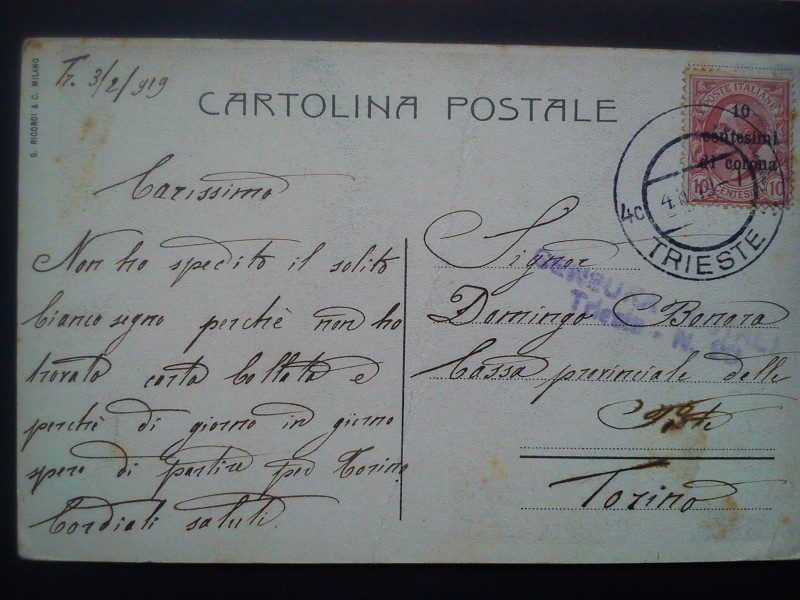 G. RICORDI & C. MILANO
Tr. 3/2/919
CARTOLINA POSTALE
POSTE ITALIANE
10
centesimi
di corona
10 CENTESIMI 10
TRIESTE
4c
Carissimo
Non ho spedito il solito
bianco segno perchè non ho
trovato carta bollata e
perchè di giorno in giorno
spero di partire per Torino
Cordiali saluti.
Signor
Domingo Bonora
Cassa provinciale delle
Poste
Torino
CENSURA
Trieste - N.